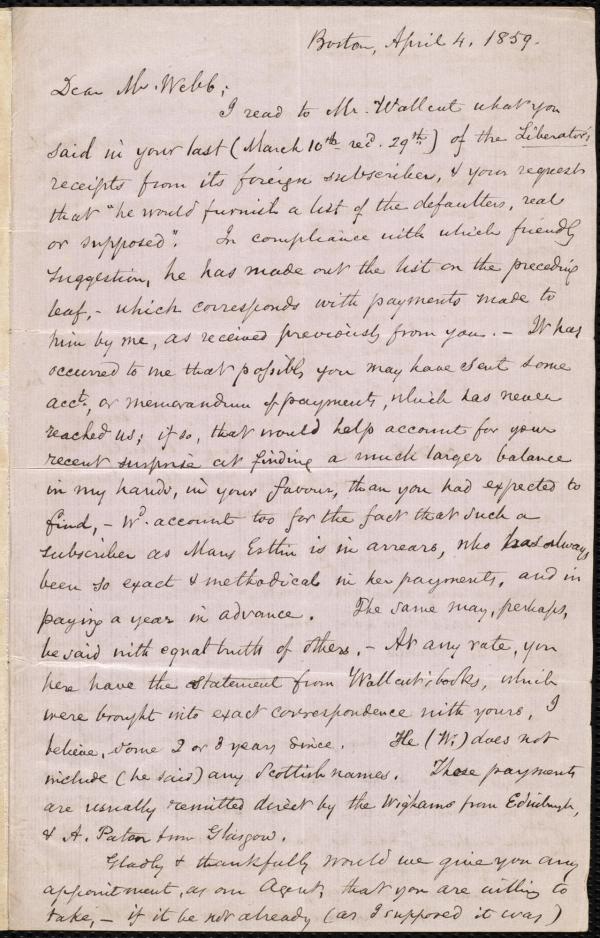 Boston, April 4. 1859.
Dear Mr. Webb;
I read to Mr. Wallcut what you
said in your last (March 10th rec'd. 29th) of the Liberator's
receipts from its foreign subscribers, & your request
that "he would furnish a list of the defaulters, real
or supposed". In compliance with which friendly
suggestion, he has made out the list on the preceding
leaf,- which corresponds with payments made to
him by me, as received previously from you. - It has
occurred to me that possibly you may have sent some
acct, or memorandum of payments, which has never
reached us; if so, that would help account for your
recent surprise at finding a much larger balance
in my hands, in your favour, than you had expected to
find, - Wd. account too for the fact that such a
subscriber as Mary Estlin is in arrears, who has always
been so exact & methodical in her payments, and in
paying a year in advance. The same may, perhaps,
be said with equal truth of others. - At any rate, you
here have the statement from Wallcut's books, which
were brought into exact correspondence with yours, I
believe, some 2 or 3 years since. He (W.) does not
include (he said) any Scottish names. These payments
are usually remitted direct by the Wighams from Edinburgh,
& A. Paton from Glasgow.
Gladly & thankfully would we give you any
appointment, as our Agent, that you are willing to
take, - if it be not already (as I supposed it was)